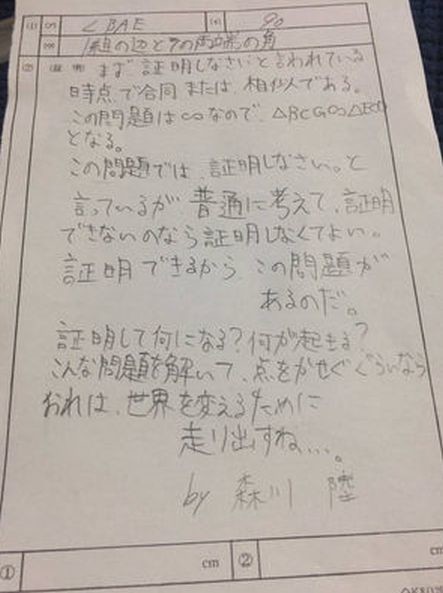 (1) (ア) ∠BAE (イ) 90
(ウ) 1組の辺とその両端の角
② (証明) まず証明しなさいと言われている
時点で合同または、相似である。
この問題は∽なので、△BCG∽△ECD
となる。
この問題では、証明しなさい。と
言っているが普通に考えて、証明
できないのなら証明しなくてよい。
証明できるから、この問題が
あるのだ。
証明して何になる?何が起きる?
こんな問題を解いて、点をかせぐぐらいなら
おれは、世界を変えるために
走り出すね...。
by 森川
① cm ② cm